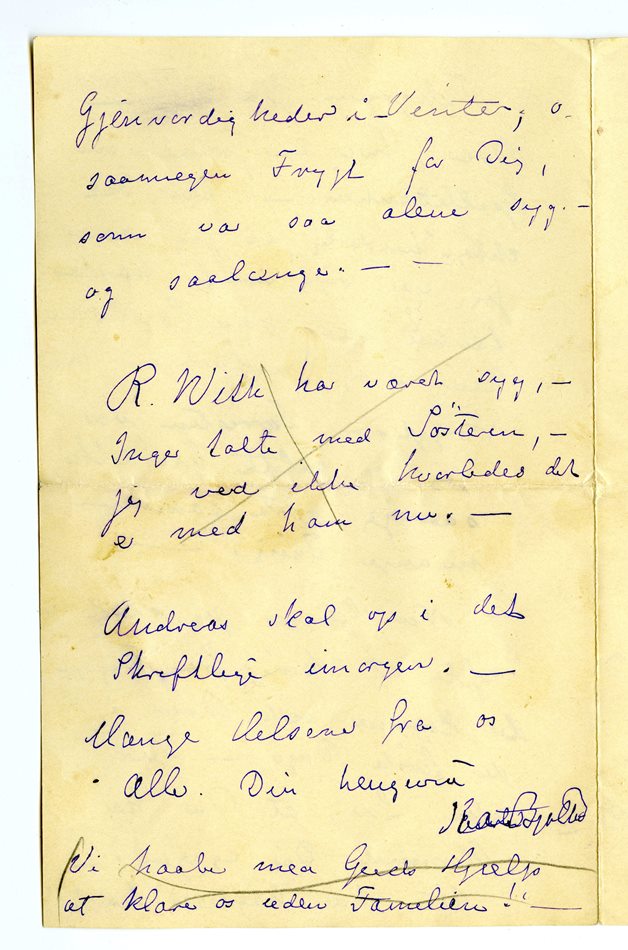 Gjenvordigheder i Vinter, o.
saamegen Frygt for Dig,
som var saa alene syg. –
og saalænge. – –
R. Wisth har været syg, –
Inger talte med Søsteren, –
jeg ved ikke hvorledes det
er med ham nu. –
Andreas skal op i det
Skriftlige imorgen. –
Mange Helsener fra os
Alle. Din hengivne
Vi haabe med Guds Hjælp
at klare os uden Familien! –